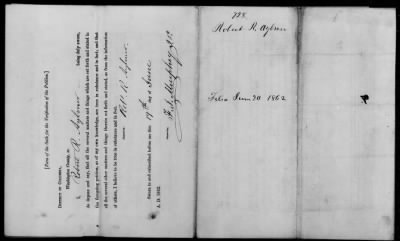 [Form of the Oath, for the Verification of the Petition.]
DISTRICT OF COLUMBIA,
Washington County, ss.
I, Robert R. Aylmer being duly sworn,
do depose and say, that all the several matters and things which are set forth and stated in
the foregoing petition, as of my own knowledge, are true in substance and in fact, and that
all the several other matters and things therein set forth and stated, as from the information
of others, I believe to be true in substance and in fact.
(Signature) Robt R. Aylmer.
Sworn to and subscribed before me this 19th day of June
A. D. 1862.
(Signature)
728.
Robert R. Aylmer
Filed June 20 1862